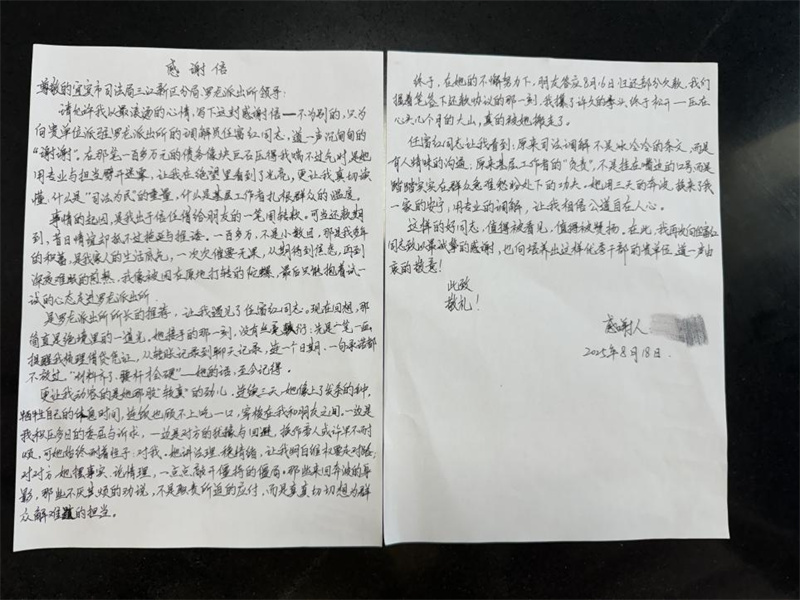 感谢信
尊敬的宜宾市司法局三江新区分局罗龙派出所领导:
请允许我以最滚烫的心情,写下这封感谢信——不为别的,只为
向贵单位派驻罗龙派出所的调解员任富红同志,道一声沉甸甸的
“谢谢”。在那笔一百多万元的债务像块巨石压得我喘不过气时,是她
用专业与担当劈开迷雾,让我在绝望里看到了光亮,更让我真切读
懂,什么是“司法为民”的重量,什么是基层工作者扎根群众的温度。
事情的起因,是我出于信任借给朋友的一笔周转款。可当还款期
到,昔日情谊却抵不过拖延与推诿。一百多万,不是小数目,那是我多年
的积蓄,是我家人的生活底气,一次次催要无果,从期待到焦急,再到
深夜难眠的煎熬,我像被困在原地打转的陀螺,最后只能抱着试一
试的心态走进罗龙派出所。
是罗龙派出所所长的推荐,让我遇见了任富红同志。现在回想,那
简直是绝境里的一道光。她接手的那一刻,没有丝毫敷衍:先是一笔一画
提醒我梳理借贷凭证,从转账记录到聊天记录,连一个日期、一句承诺都
不放过,“材料齐了,腰杆才会硬”——她的话,至今记得。
更让我动容的是她那股“较真”的劲儿。连续三天,她像上了发条的钟,
牺牲自己的休息时间,连饭也顾不上吃一口,穿梭在我和朋友之间。一边是
我积压多日的委屈与诉求,一边是对方的犹豫与回避,换作旁人或许早不耐
烦,可她始终耐着性子:对我,她讲法理、稳情绪,让我明白维权要走对路;
对对方,她摆事实、说情理,一点点敲开僵持的僵局。那些来回奔波的身
影,那些不厌其烦的劝说,不是职责所迫的应付,而是真真切切想为群
众解难题的担当。
终于,在她的不懈努力下,朋友答应8月16日归还部分欠款,我们
握着笔签下还款协议的那一刻,我攥了许久的拳头,终于松开——压在
心头几个月的大山,真的被她搬走了。
任富红同志让我看到:原来司法调解不是冰冷冷的条文,而是
有人情味的沟通;原来基层工作者的“负责”,不是挂在嘴边的口号,而是
踏踏实实在群众急难愁盼处下的功夫。她用三天的奔波,换来了我
一家的安宁,用专业的调解,让我相信公道自在人心。
这样的好同志,值得被看见,值得被赞扬。在此,我再次向任富红
同志致以最诚挚的感谢,也向培养出这样优秀干部的贵单位,道一声由
衷的敬意!
此致
敬礼!
感谢人:
2025年8月18日.